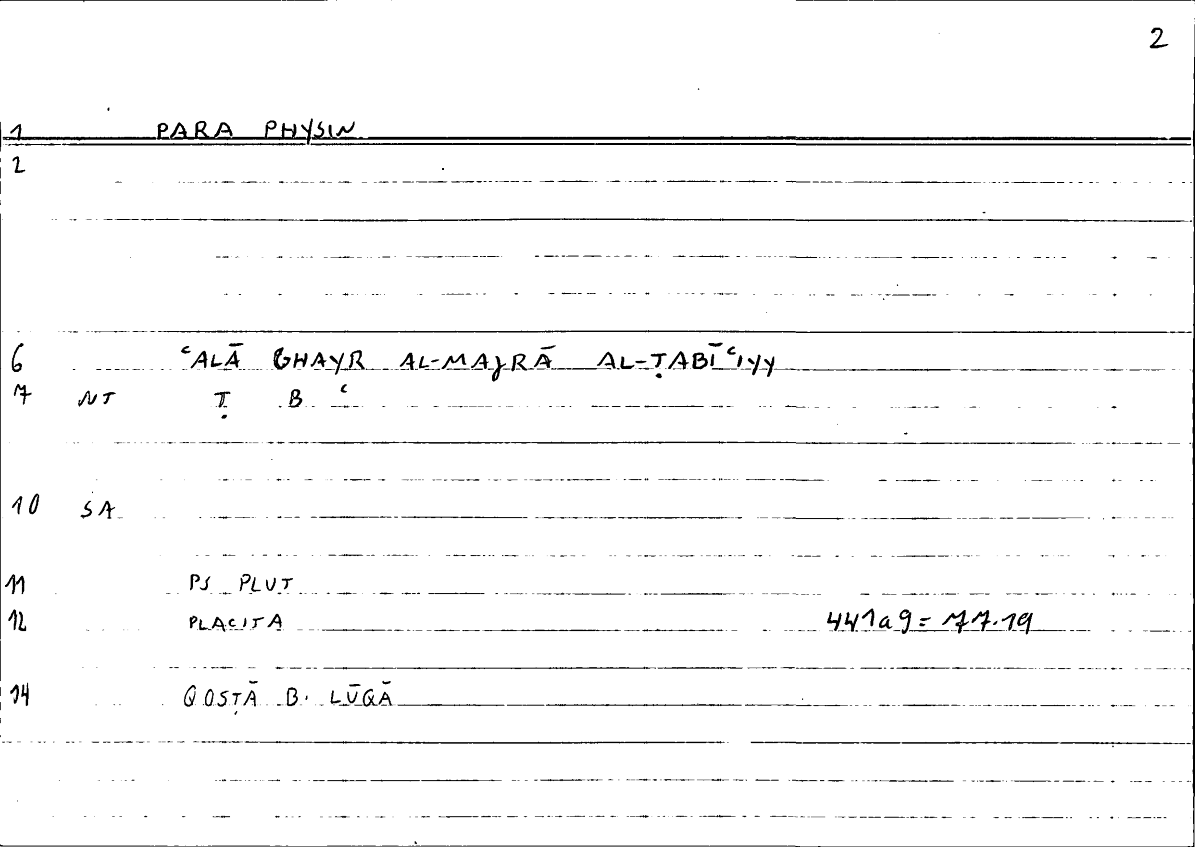 2
1 PARA PHYSIN
2
6 ʿALĀ GHAYR AL-MAJRĀ AL-ṬABĪʿIYY
7 NT Ṭ B ʿ
10 SA
11 PS PLUT
12 PLACITA 441a9 = 77.19
14 QOSṬĀ B. LŪQĀ